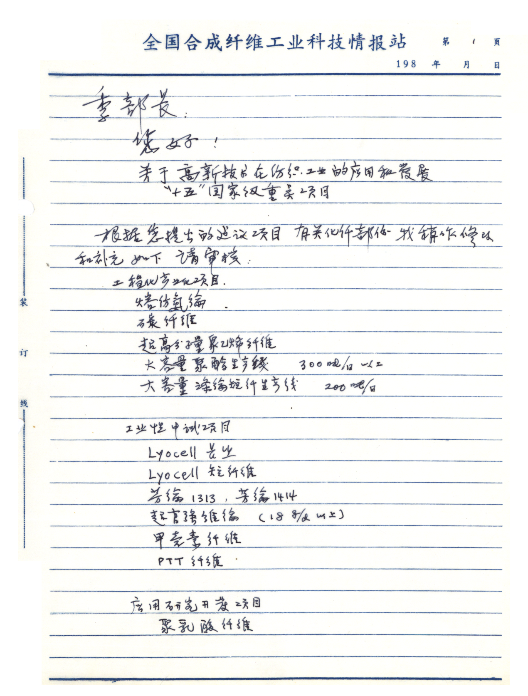 全国合成纤维工业科技情报站
第 1 页
198 年 月 日
季部长:
您好!
关于高新技术在纺织工业的应用和发展
"十五"国家级重点项目
根据您提出的建议项目 有关化纤部份 我稍作修改
和补充如下 请审核:
工程化产业化项目.
熔纺氨纶
碳纤维
超高分子量聚乙烯纤维
大容量聚酯生产线 300吨/日以上
大容量涤纶短纤生产线 200吨/日
工业性中试项目
Lyocell 长丝
Lyocell 短纤维
芳纶1313、芳纶1414
超高强维纶 (18g/d以上)
甲壳素纤维
PTT 纤维
应用研究开发项目
聚乳酸纤维
装
订
线